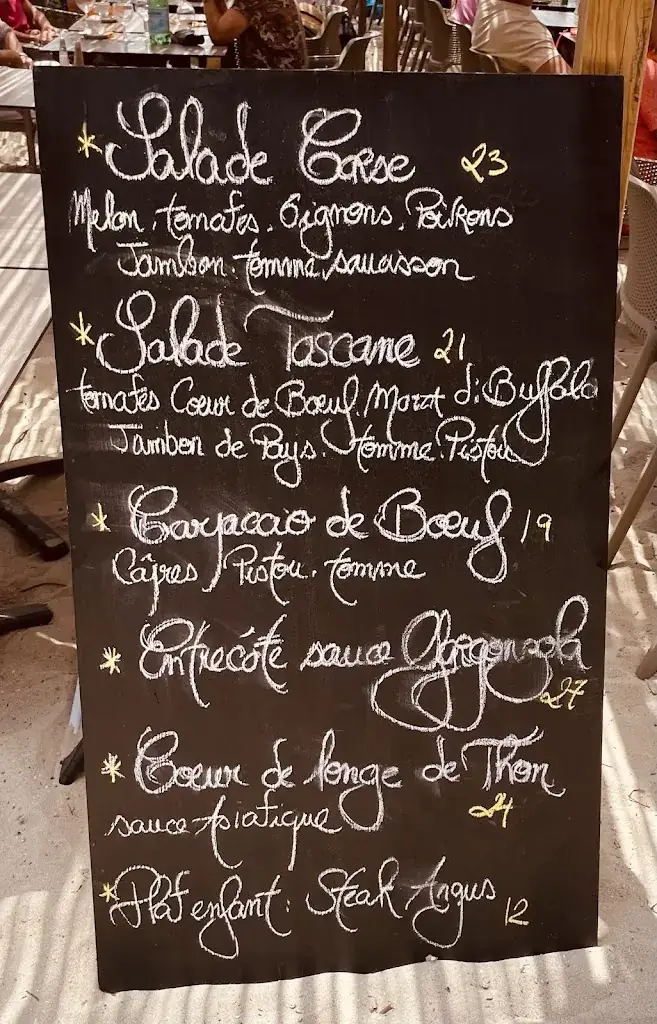 * Salade Corse 23
Melon. tomates. Oignons. Poivrons
Jambon. tomme. saucisson
* Salade Toscane 21
tomates Coeur de Boeuf. Mozat di Buffala
Jambon de Pays. tomme. Pistou
* Carpaccio de Boeuf 19
Câpres, Pistou. tomme
* Entrecôte sauce Gorgonzola
27
* Coeur de longe de Thon
sauce Asiatique 24
* Plat enfant: Steak Angus 12